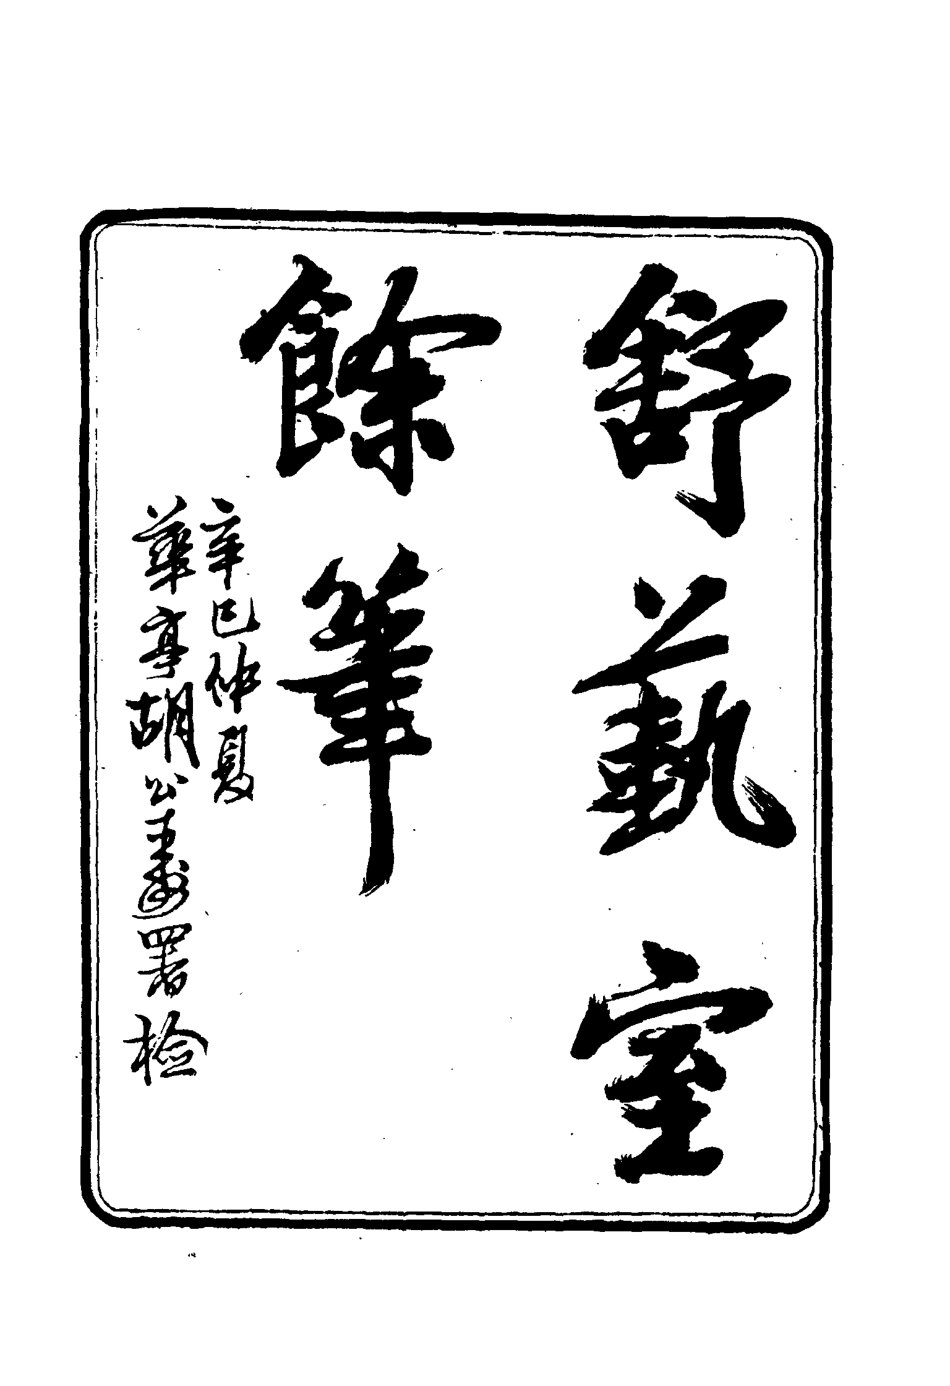 舒藝室
餘筆
辛巳仲夏
華亭胡公壽署檢